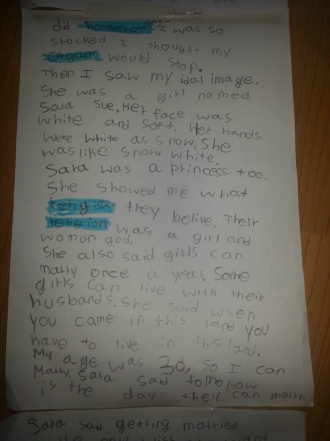 did household I was so
stocked I thought my
organs would stop.
Then I saw my idal image.
She was a girl named
Sara Sue. Her face was
white and soft. Her hands
were white as snow. She
was like snow white.
Sara was a princess too.
She showed me what
religion they belive. Their
religion was a girl and
woman god.
She also said girls can
marry once a year. Some
girls can live with their
husbands. She said when
you came in this land you
have to live in this land.
My age was 30, so I can
marry. Sara said tomorrow
is the day they can marry.
Sara said getting married